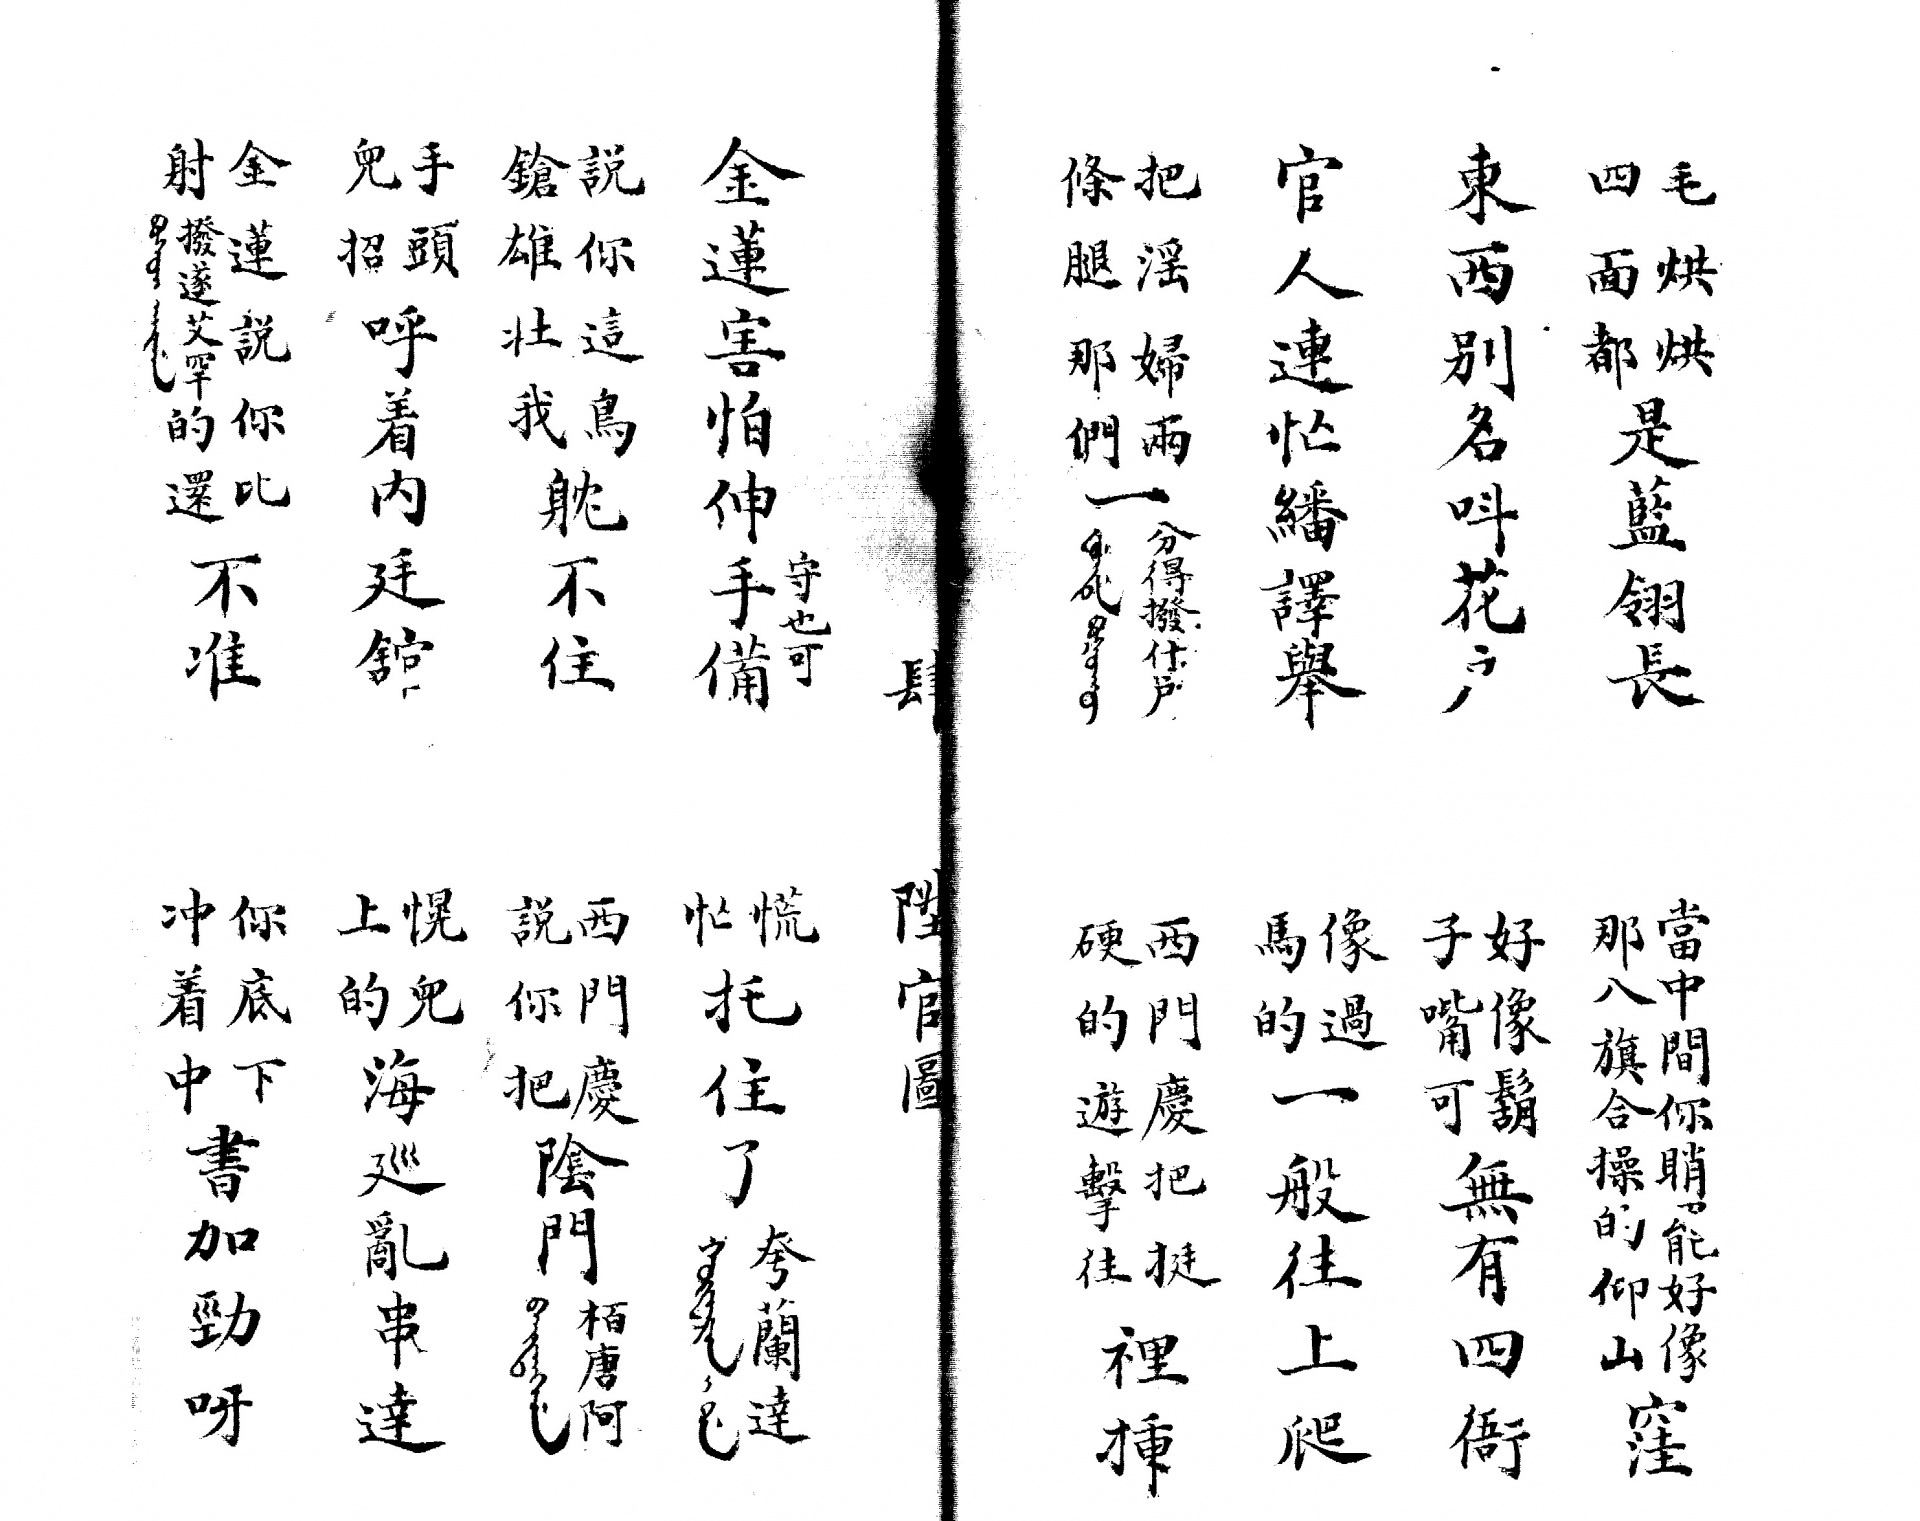 毛烘烘四面都是藍翎長
當中間你睄能好像那八旗合操的仰山窪
東西別名呌花户
好像鬍子嘴可無有四衙
官人連忙繙譯舉
像過馬的一般往上爬
把淫婦兩條腿那們一分得撥什户
西門慶把挺硬的遊擊往裡揷
肆
陞官圖
金蓮害怕伸手備守也可
慌忙托住了夸蘭達
説你這鳥鎗雄壯我躭不住
西門慶説你把陰門栢唐阿
手頭兒招呼着内廷舘
愰兒上的海廵亂串達
金蓮説你比射撥遂艾罕的還不准
你底下冲着中書加勁呀